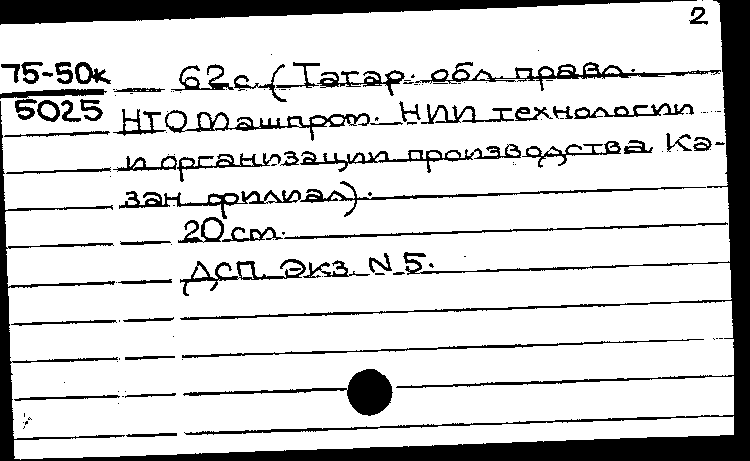 2
75-50к
5025
62с. (Татар. обл. правл.
НТО Машпром. НИИ технологии
и организации производства Ка-
зан. филиал).
20 см.
ДСП. Экз. N 5.